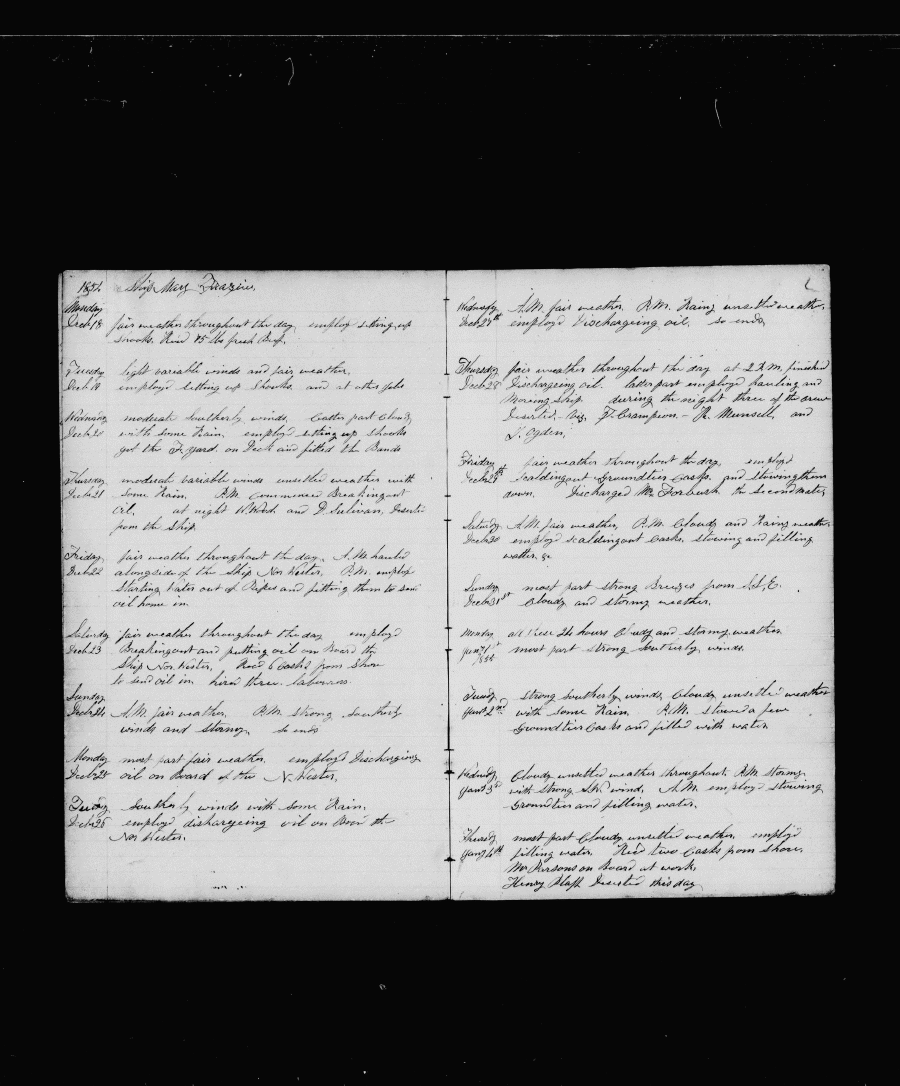 1854. Ship Mary Frazier.
Monday
Decbr 18 fair weather throughout the day employ setting up
shooks. Recd 75 lbs fresh Beef.
Tuesday light variable winds and fair weather.
Decbr 19 employd setting up Shooks. and at other jobs
Wednsday moderate Southerly winds, Latter part Cloudy
Decbr 20 with some Rain. employd setting up Shooks
got the F. yard. on Deck and fitted the Bands
Thursday moderate variable winds unsettled weather with
Decbr 21 some Rain. P.M. Commence Breakingout
oil. at night W. Wood and D Sulivan, Deserted
from the Ship.
Friday fair weather throughout the day. A.M. hauled
Decbr 22 alongside of the Ship Nor Wester, P.M. employ
Starting Water out of Pipes and fitting them to send
oil home in.
Saturday fair weather throughout the day employd
Decbr 23 Breakingout and putting oil on Board the
Ship Nor Wester, Recd 6 Casks from Shore
to send oil in. hired three labourers.
Sunday
Decbr 24 A.M. fair weather. P.M. strong Southerly
winds and stormy, So ends
Monday most part fair weather. employd Discharging
Decbr 25 oil on Board of the N. Wester,
Tuesday Southerly winds with some Rain.
Decbr 26 employd dishargeing oil on Board the
Nor Wester.
Wednsday A.M. fair weather. P.M. Rainy unsettled weather.
Decbr 27th employd Dischargeing oil, so ends,
Thursday fair weather throughout the day at 2 P.M. finished
Decbr 28 Dischargeing oil. latter part employd hauling and
Mooring Ship during the night three of the crew
Deserted. Viz. F. Crampson. R. Munsell, and
J. Ogden,
Friday fair weather throughout the day employd
Decbr 29th Scaldingout Groundtier Casks. and Stowing them
down. Discharged Mr Forbush the Second Mate,
Saturday A.M. fair weather, P.M. Cloudy and Rainy weather
Decbr 30 employd Scaldingout Casks. stowing and filling
water, &c
Sunday most part strong Breezes from S.S.E.
Decbr 31st Cloudy and stormy weather.
Monday all these 24 hours Cloudy and stormy weather.
Jany 1st most part strong Southerly winds.
1855
Tuesday strong Southerly winds, Cloudy unsettled weather
Jany 2nd with some Rain. P.M. stowed a few
Groundtier Casks and filled with water
Wednsday Cloudy unsettled weather throughout. P.M. stormy
Jany 3rd with strong S.W. wind. A.M. employd stowing
Groundtier and filling water.
Thursday most part Cloudy unsettled weather. employd
Jany 4th filling water. Recd two Casks from shore.
Mr Persons on Board at work.
Henry Deserted this day